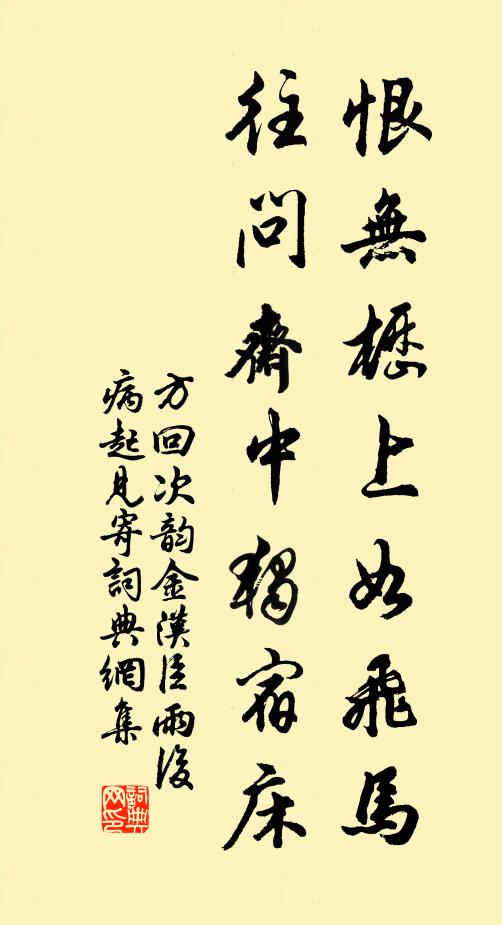 恨無櫪上如飛馬
往問齋中獨宿床
方回次韵金漢臣雨後
病起見寄詞典網集
詞典網印